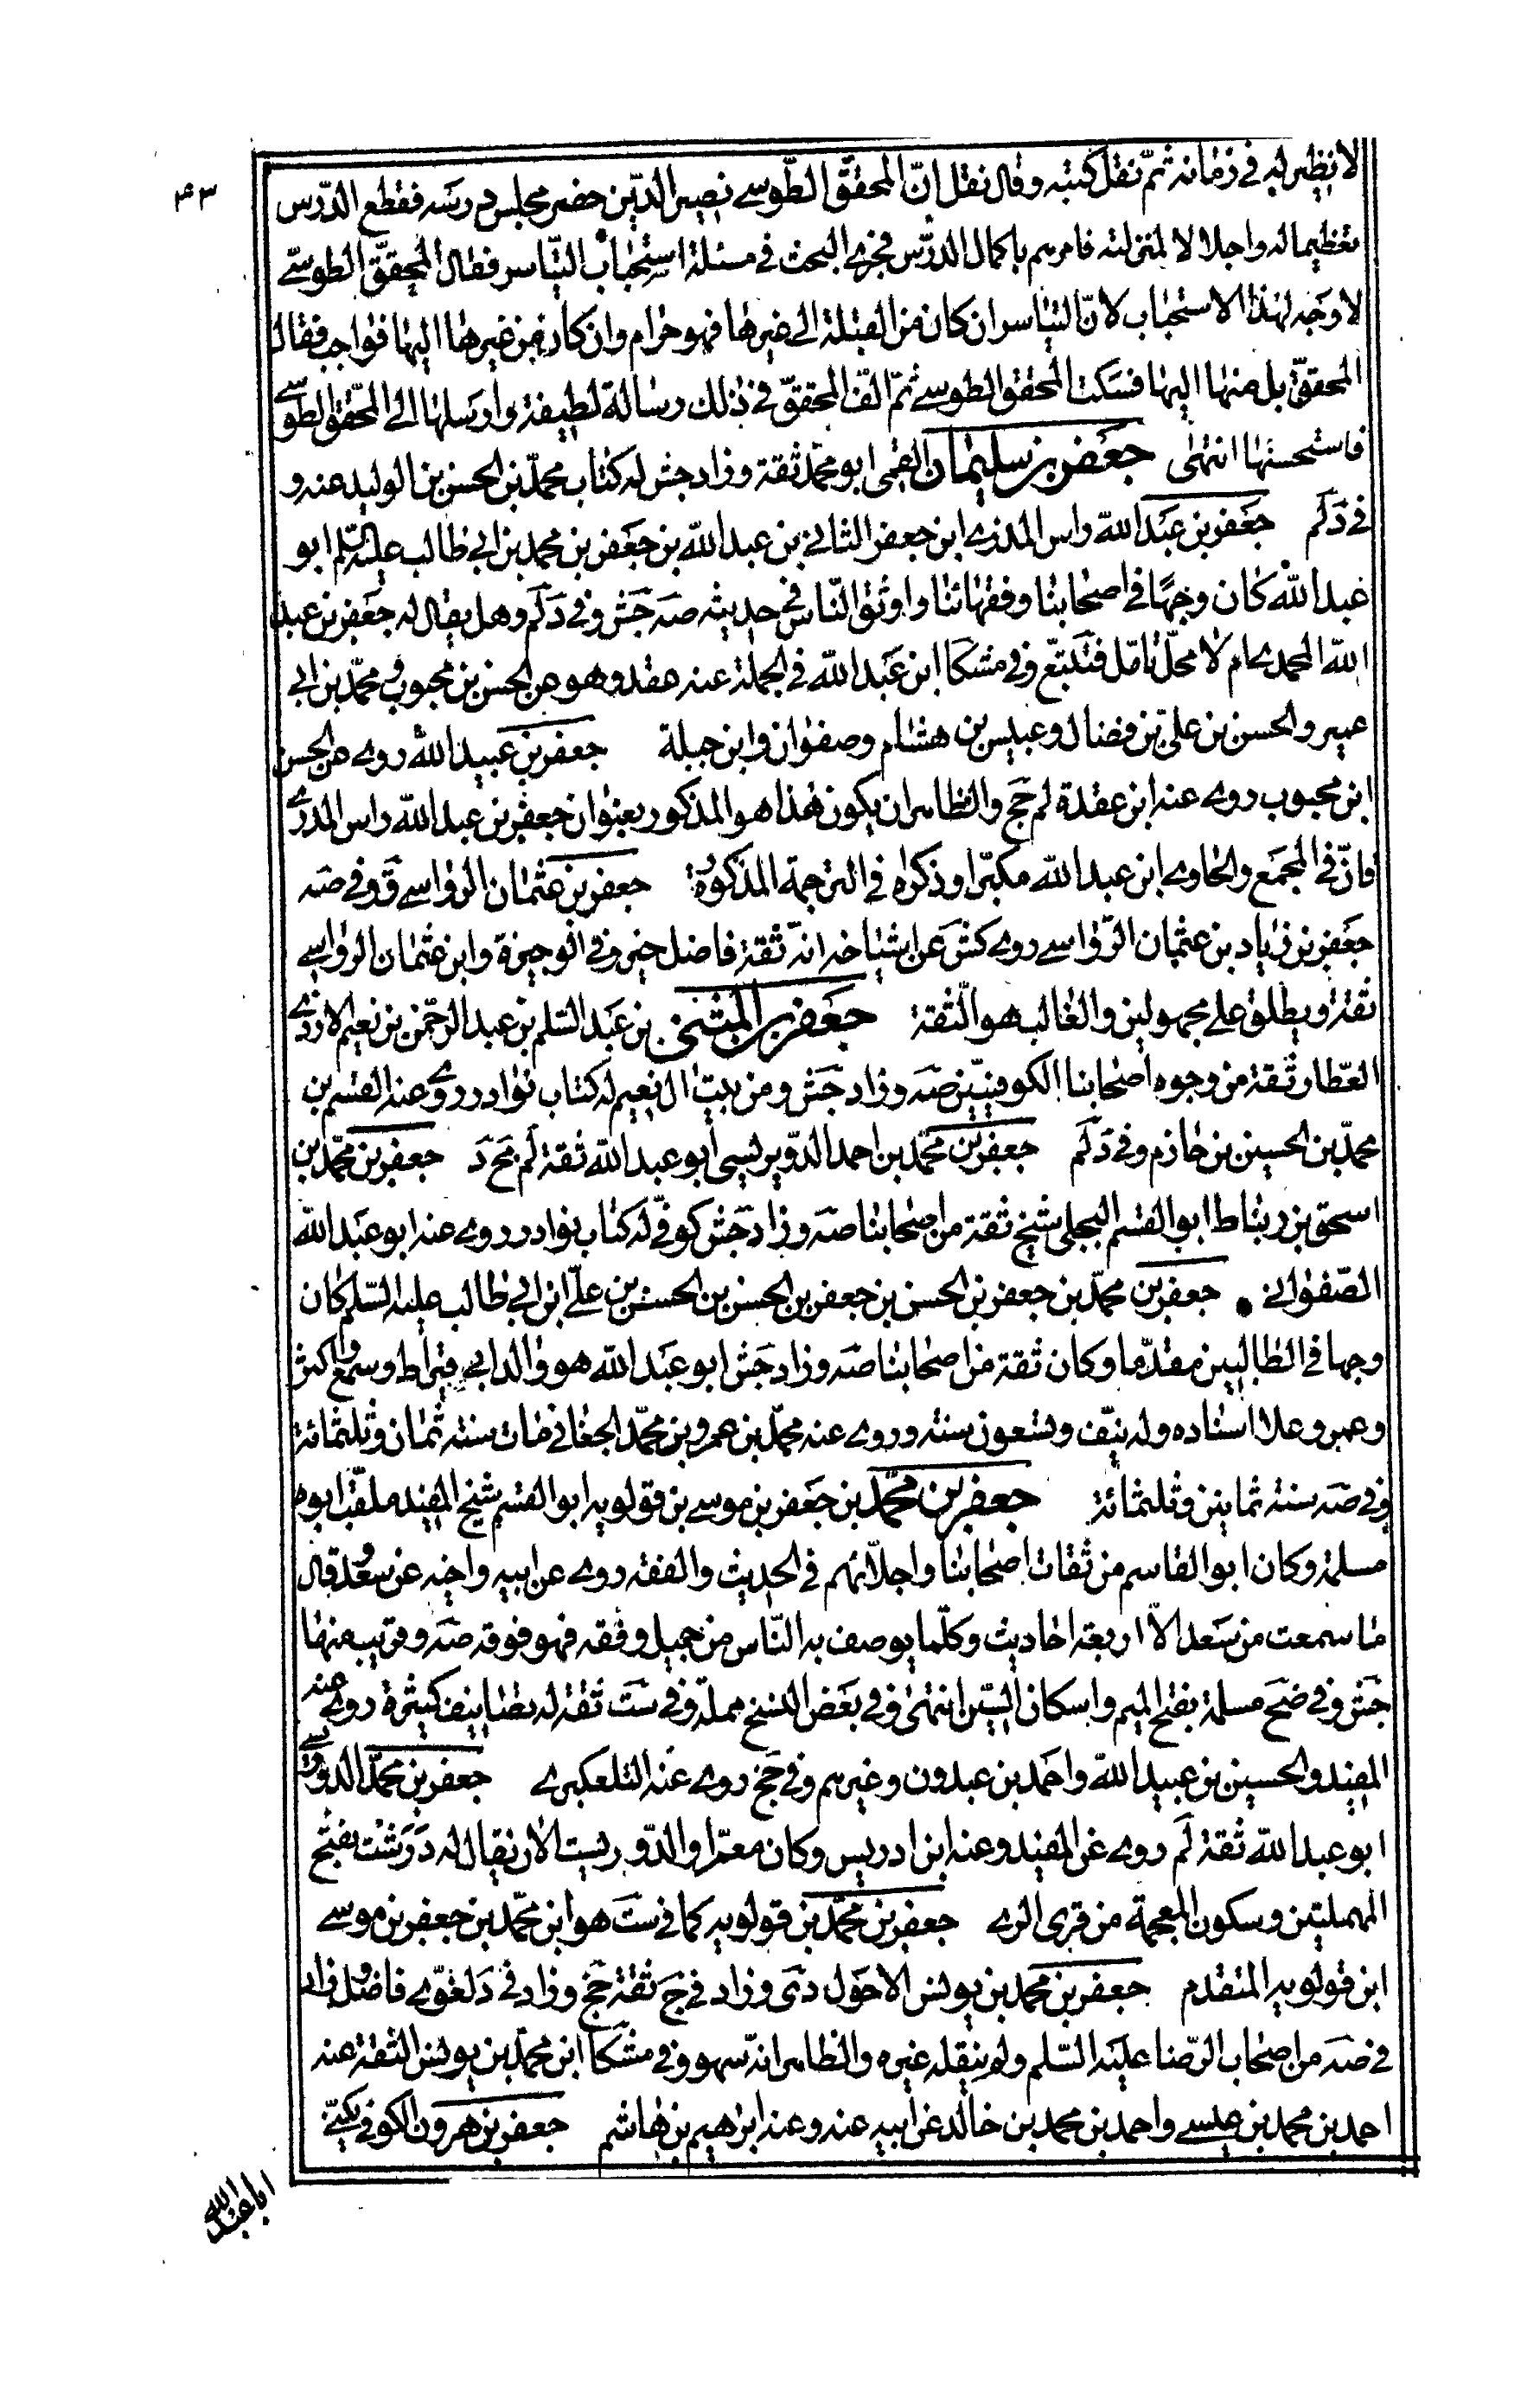 ۴۳
لا نظير له في زمانه ثمّ نقل كتبه وقال نقل انّ المحقّق الطّوسے نصير الدّين حضر مجلس درسه فقطع الدّرس
تعظيما له واجلالا لمنزلته فامرهم باكمال الدّرس فجرے البحث في مسئلة استحباب التّياسر فقال المحقّق الطوسے
لا وجه لهذا الاستحباب لانّ التياسر ان كان من القبلة الى غيرها فهو حرام وان كان من غيرها اليها فواجب فقال
المحقّق بل منها اليها فسكت المحقق الطوسے ثمّ الّف المحقّق في ذلك رسالة لطيفة وارسلها الى المحقّق الطوسے
فاستحسنها انتهى جعفر بن سليمان القمى ابو محمّد ثقة وزاد جش له كتاب محمّد بن الحسن بن الوليد عنه و
في د لم جعفر بن عبد اللّه راس المذرے ابن جعفر الثاني بن عبد اللّه بن جعفر بن محمد بن ابي طالب عليه السلم ابو
عبد اللّه كان وجهًا في اصحابنا وفقهائنا واوثق النّاس في حديثه صه جش وفي د لم وهل يقال له جعفر بن عبد
اللّه المحمدے ام لا محلّ تامّل فتتبّع وفي مشكا ابن عبد اللّه في الجملة عنه عقد وهو عن الحسن بن محبوب ومحمّد بن ابي
عمير والحسن بن علىّ بن فضال وعبيس بن هشام وصفوان وابن جبلة جعفر بن عبيد اللّه روے عن الحسن
ابن محبوب روے عنه ابن عقدة لم جخ والظاهر ان يكون هذا هو المذكور بعنوان جعفر بن عبد اللّه راس المذرے
فانّ في المجمع والحاوے ابن عبد اللّه مكبّرا وذكراه في الترجمة المذكورة جعفر بن عثمان الرواسے ق وفي صه
جعفر بن زياد بن عثمان الرّواسے روے كش عن اشياخه انّه ثقة فاضل خير وفي الوجيزة وابن عثمان الرواسے
ثقة ويطلق على مجهولين والغالب هو الثقة جعفر بن المثنى بن عبد السّلم بن عبد الرحمّن بن نعيم الازدے
العطّار ثقة من وجوه اصحابنا الكوفيّين صه وزاد جش ومن بيت ال نعيم له كتاب نوادر روے عنه القسم بن
محمّد بن الحسين بن حازم وفي د لم جعفر بن محمّد بن احمد الدّوريستى ابو عبد اللّه ثقة لم جخ د جعفر بن محمّد بن
اسحق بن رباط ابو القسم البجلى شيخ ثقة من اصحابنا صه وزاد جش كوفيّ له كتاب نوادر روے عنه ابو عبد اللّه
الصّفواني جعفر بن محمّد بن جعفر بن الحسن بن جعفر بن الحسن بن الحسن بن علىّ ابن ابي طالب عليه السّلم كان
وجها في الطالبيين مقدّما وكان ثقة من اصحابنا صه وزاد جش ابو عبد اللّه هو والد ابي قيراط وسمع واكثر
وعمر وعلا اسناده وله نيّف وتسعون سنة وروے عنه محمّد بن عمرو بن محمّد الجعاني مات سنة ثمان وثلثمائة
وفي صه سنة ثمانين وثلثمائة جعفر بن محمّد بن جعفر بن موسے بن قولويه ابو القسم شيخ المفيد ملقّب ابوه
مسلمة وكان ابو القاسم من ثقات اصحابنا واجلّائهم في الحديث والفقه روے عن ابيه واخيه عن سعد وقال
ما سمعت من سعد الّا اربعة احاديث وكلّما يوصف به النّاس من جميل وفقه فهو فوقه صه وقريب منها
جش وفي ضح مسلمة بفتح الميم واسكان السّين انتهى وفي بعض النسخ مملّة وفي ست ثقة له تصانيف كثيرة روے عنه
المفيد والحسين بن عبيد اللّه واحمد بن عبدون وغيرهم وفي جخ روے عنه التلعكبرے جعفر بن محمّد الدوريستے
ابو عبد اللّه ثقة لم روے عن المفيد وعنه ابن ادريس وكان معمّرا والدّوريست الان يقال له درشت بفتح
المهملتين وسكون المعجمة من قرى الرے جعفر بن محمّد بن قولويه كما في ست هو ابن محمّد بن جعفر بن موسے
ابن قولويه المتقدم جعفر بن محمد بن يونس الاحول دى وزاد في ج ثقة جخ وزاد في د لغوّے فاضل وزاد
في صه من اصحاب الرّضا عليه السّلم ولم ينقله غيره والظاهر انّه سهو وفي مشكا ابن محمّد بن يونس الثقة عنه
احمد بن محمد بن عيسے واحمد بن محمد بن خالد عن ابيه عنه وعنه ابرهيم بن هاشم جعفر بن هرون الكوفي يكنّى
ابا عبد اللّه